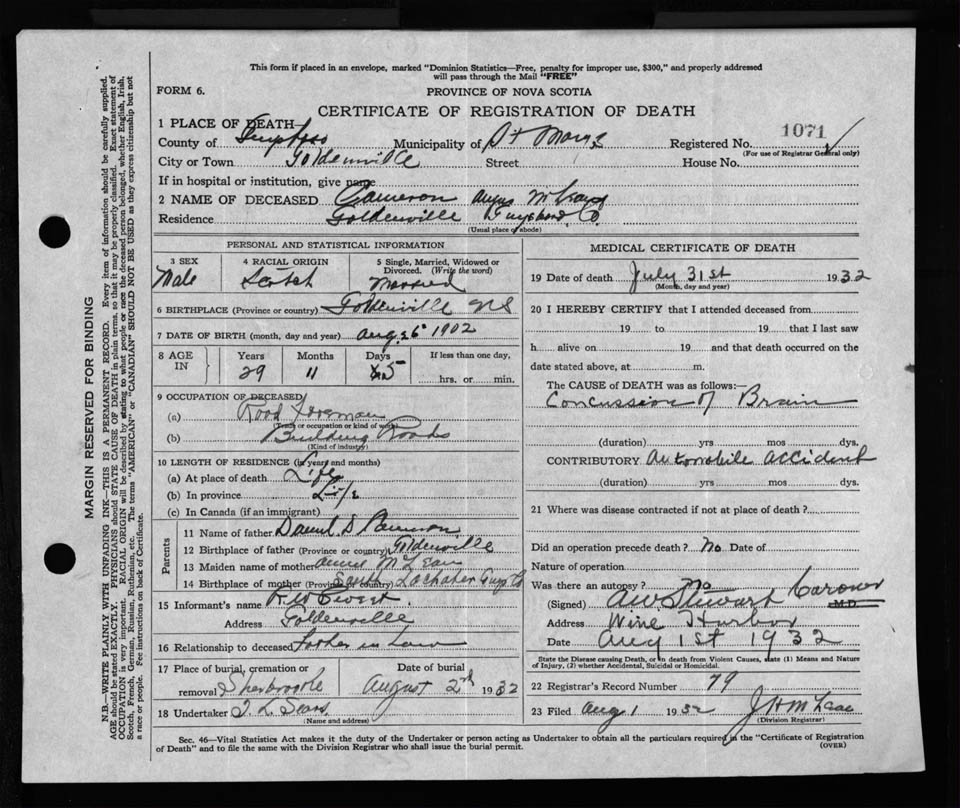 This form if placed in an envelope, marked "Dominion Statistics—Free, penalty for improper use, $300," and properly addressed
will pass through the Mail "FREE"
FORM 6.
PROVINCE OF NOVA SCOTIA
CERTIFICATE OF REGISTRATION OF DEATH
1071
1 PLACE OF DEATH
County of Municipality of St Marys Registered No.
(For use of Registrar General only)
City or Town Goldenville Street House No.
If in hospital or institution, give name
2 NAME OF DECEASED Cameron Angus McLean
Residence Goldenville Guysboro Co
(Usual place of abode)
PERSONAL AND STATISTICAL INFORMATION
3 SEX 4 RACIAL ORIGIN 5 Single, Married, Widowed or
Divorced. (Write the word)
Male Scotch Married
6 BIRTHPLACE (Province or country) Goldenville N S
7 DATE OF BIRTH (month, day and year) Aug. 26 1902
8 AGE IN Years Months Days If less than one day,
29 11 5 hrs. or min.
9 OCCUPATION OF DECEASED
(a) Road Foreman
(Trade or occupation or kind of work)
(b) Building Roads
(Kind of industry)
10 LENGTH OF RESIDENCE (in years and months)
(a) At place of death Life
(b) In province Life
(c) In Canada (if an immigrant)
Parents
11 Name of father Daniel S Cameron
12 Birthplace of father (Province or country) Goldenville
13 Maiden name of mother Annie McLean
14 Birthplace of mother (Province or country) South Lochaber Guys Co
15 Informant's name
Address Goldenville
16 Relationship to deceased Father in Law
17 Place of burial, cremation or Date of burial
removal Sherbrooke August 2nd 1932
18 Undertaker
(Name and address)
MEDICAL CERTIFICATE OF DEATH
19 Date of death July 31st 1932
(Month, day and year)
20 I HEREBY CERTIFY that I attended deceased from
19 to 19 that I last saw
h alive on 19 and that death occurred on the
date stated above, at m.
The CAUSE of DEATH was as follows:—
Concussion of Brain
(duration) yrs mos dys.
CONTRIBUTORY Automobile accident
(duration) yrs mos dys.
21 Where was disease contracted if not at place of death?
Did an operation precede death? No Date of
Nature of operation
Was there an autopsy? No
(Signed) A W Stewart Coroner
M.D.
Address Wine Harbor
Date Aug 1st 1932
State the Disease causing Death, or in death from Violent Causes, state (1) Means and Nature
of Injury, (2) whether Accidental, Suicidal or Homicidal.
22 Registrar's Record Number 79
23 Filed Aug 1 1932 J H McLean
(Division Registrar)
Sec. 46—Vital Statistics Act makes it the duty of the Undertaker or person acting as Undertaker to obtain all the particulars required in the "Certificate of Registration
of Death" and to file the same with the Division Registrar who shall issue the burial permit.
(OVER)
MARGIN RESERVED FOR BINDING
N.B.—WRITE PLAINLY WITH UNFADING INK—THIS IS A PERMANENT RECORD. Every item of information should be carefully supplied.
AGE should be stated EXACTLY. PHYSICIANS should STATE CAUSE OF DEATH in plain terms, so that it may be properly classified. Exact statement of
OCCUPATION is very important. RACIAL ORIGIN will be described by stating to what people or race the deceased person belonged, whether English, Irish,
Scotch, French, German, Russian, Ruthenian, etc. The terms "AMERICAN" or "CANADIAN" SHOULD NOT BE USED as they express citizenship but not
a race or people. See instructions on back of Certificate.